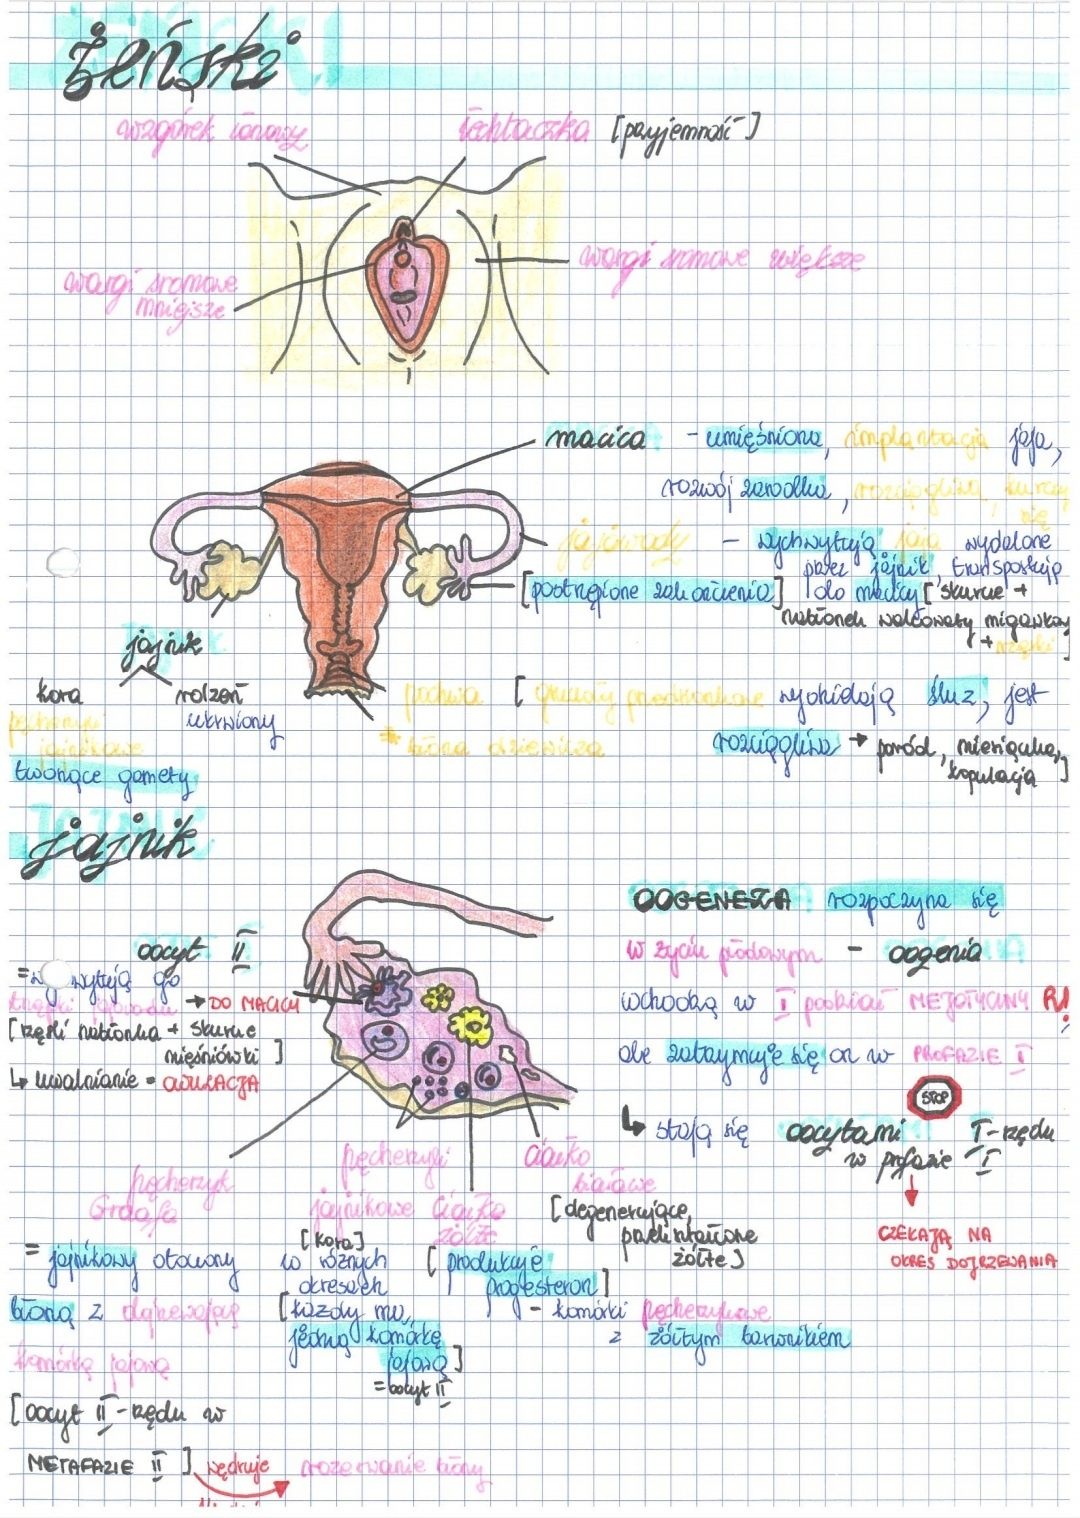 żeński
wzgórek łonowy
łechtaczka [przyjemność]
wargi sromowe większe
wargi sromowe
mniejsze
macica - umięśniona, implantacja jaja,
rozwój zarodka, rozciągliwa, kurczy
się
jajowody - wychwytują jaja wydalone
przez jajnik, transportują
[postrzępione zakończenia] do macicy [skurcze +
nabłonek walcowaty migawkowy
+ rzęski]
jajnik
kora rdzeń
pęcherzyki ukrwiony
jajnikowe
tworzące gamety
pochwa [gruczoły przedsionkowe wydzielają śluz, jest
* błona dziewicza
rozciągliwa → poród, miesiączka,
kopulacja]
jajnik
OOGENEZA rozpoczyna się
w życiu płodowym - oogonia
wchodzą w I podział MEJOTYCZNY R!
ale zatrzymuje się on w PROFAZIE I
STOP
↳ stają się oocytami I-rzędu
w profazie I
CZEKAJĄ NA
OKRES DOJRZEWANIA
oocyt II
go
→ DO MACICY
[rzęski nabłonka + skurcze
mięśniówki]
↳ uwalnianie = OWULACJA
pęcherzyk
Graafa
= jajnikowy otoczony
błoną z dojrzewającą
komórką jajową
[oocyt II-rzędu w
METAFAZIE II] wędruje rozerwanie błony
pęcherzyki
jajnikowe
[kora]
w różnych
okresach
[każdy ma
jedną komórkę
jajową]
= oocyt II
ciałko
żółte
[produkuje
progesteron]
- komórki pęcherzykowe
z żółtym barwnikiem
ciałko
białawe
[degenerujące,
żółte]